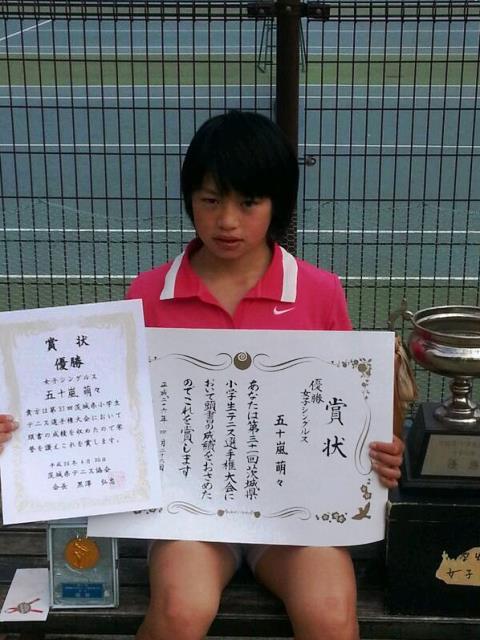 賞状
優勝
女子シングルス
五十嵐 萌々
貴方は第31回茨城県小学生
テニス選手権大会において
頭書の成績を収めたので栄
誉を讃えこれを賞します。
平成26年4月26日
茨城県テニス協会
会長 黒澤 弘忠
賞状
優勝
女子シングルス
五十嵐 萌々
あなたは第三十一回茨城県
小学生テニス選手権大会に
おいて頭書の成績をおさめた
のでこれを賞します
平成二十六年 四月二十六日
優勝
女子